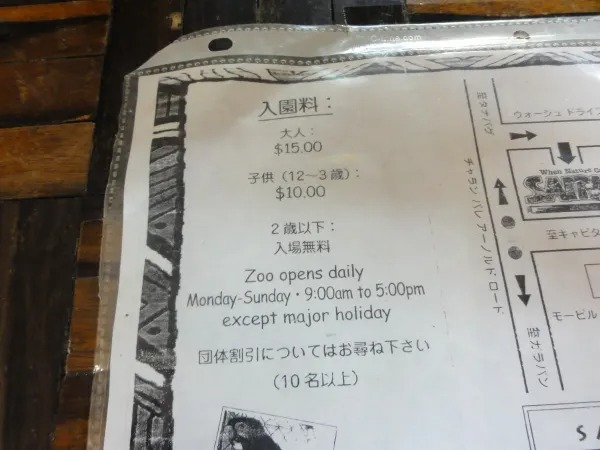 入園料：
大人：
$15.00
子供（12〜3歳）：
$10.00
2歳以下：
入場無料
Zoo opens daily
Monday-Sunday・9:00am to 5:00pm
except major holiday
団体割引についてはお尋ね下さい
（10名以上）
至タナパグ
ウォーシュ ドライブ
チャランパレ アーノルド ロード
When Nature
至キャピタ
モービル
至ガラパン
S A